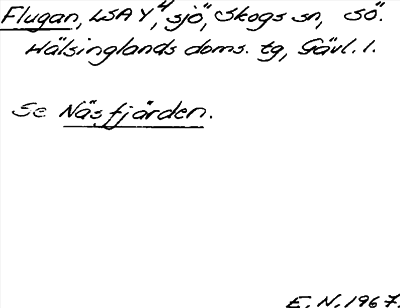 Flugan, LSA Y⁴, sjö, Skogs sn, Sö.
Hälsinglands doms. tg, Gävl. l.
Se Näsfjärden.
E. N. 1967.